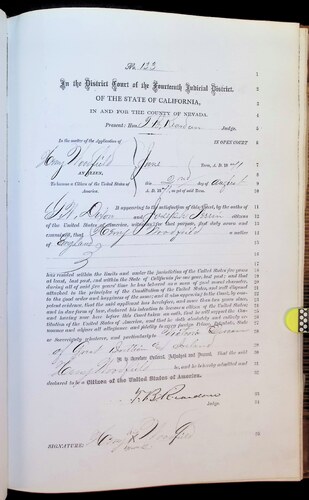 No. 122
In the District Court of the Fourteenth Judicial District.
OF THE STATE OF CALIFORNIA,
IN AND FOR THE COUNTY OF NEVADA.
Present: Hon. T. B. Reardan Judge.
In the matter of the Application of IN OPEN COURT
June Term, A. D. 187
AN ALIEN,
To become a Citizen of the United States of America. this 2nd day of August A. D. 187
It appearing to the satisfaction of this Court, by the oaths of
and Joseph citizens
of the United States of America, witnesses for that purpose, first duly sworn and
examined, that Henry a native
of England
has resided within the limits and under the jurisdiction of the United States five years
at least, last past, and within the State of California for one year last past; and that
during all of said five years' time he has behaved as a man of good moral character,
attached to the principles of the Constitution of the United States, and well disposed
to the good order and happiness of the same; and it also appearing to the Court, by competent
evidence, that the said applicant has heretofore, and more than two years since,
and in due form of law, declared his intention to become a citizen of the United States;
and having now here before this Court taken an oath, that he will support the Constitution
of the United States of America, and that he doth absolutely and entirely
renounce and abjure all allegiance and fidelity to every foreign Prince, Potentate, State
or Sovereignty whatever, and particularly to Victoria Queen
of Great Britain and Ireland
It is therefore Ordered, Adjudged and Decreed, that
Henry be, and he is hereby admitted and
declared to be a Citizen of the United States of America.
T. B. Reardan
Judge
SIGNATURE: Henry X
mark